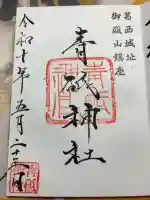 葛西城址
御殿山鎮座
青砥神社
令和 年五月二十三日